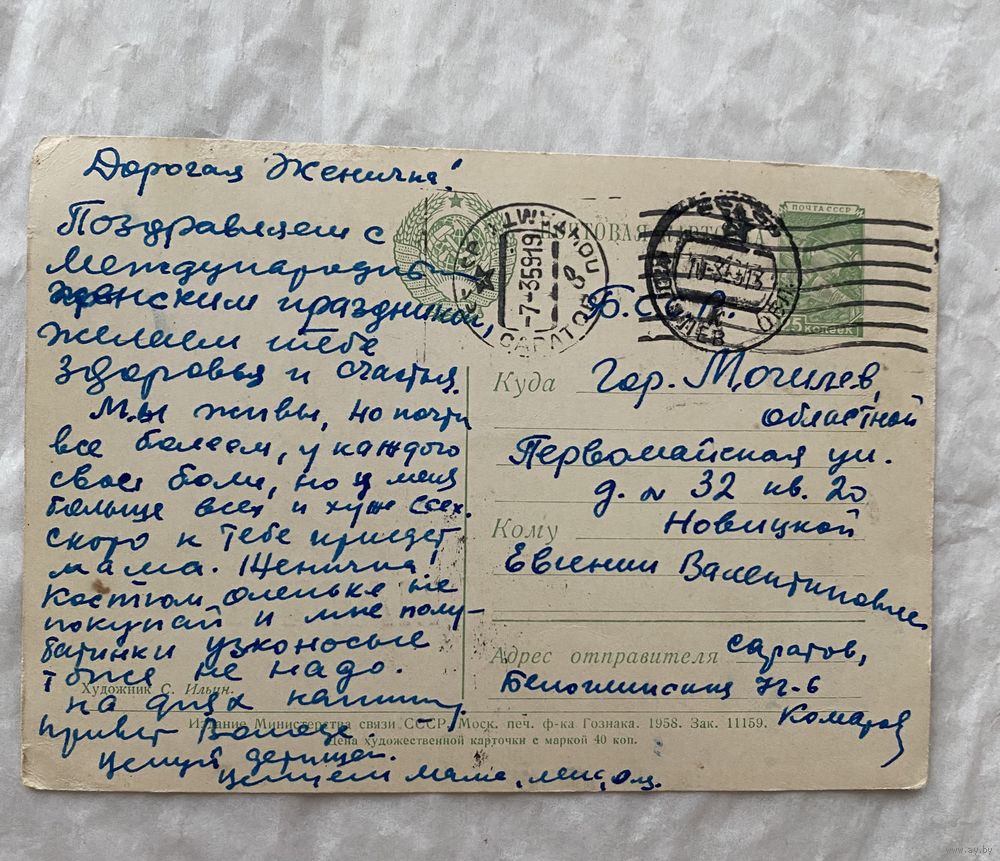 Дорогая Женичка!
Поздравляем с
Международным
женским праздником,
желаем тебе
здоровья и счастья.
Мы живы, но почти
все болеем, у каждого
свои боли, но у меня
больше всех и хуже всех.
скоро к тебе приедет
мама. Женичка,
костюм Оленьке не
покупай и мне полу-
ботинки узконосые
тоже не надо.
на днях напишу.
привет
Целуй детишек.
Целуем мама,
ПОЧТОВАЯ КАРТОЧКА
ПОЧТА СССР
25 копеек
САРАТОВ
-7-35919
Б.С.С.Р.
Куда гор. Могилев,
областной
Первомайская ул.
д. № 32 кв. 20
Кому Новицкой
Евгении Валентиновне
Адрес отправителя Саратов,
Белоглинская 72-6
Комаров
Художник С. Ильин.
Издание Министерства связи СССР. Моск. печ. ф-ка Гознака. 1958. Зак. 11159.
Цена художественной карточки с маркой 40 коп.
www.ay.by